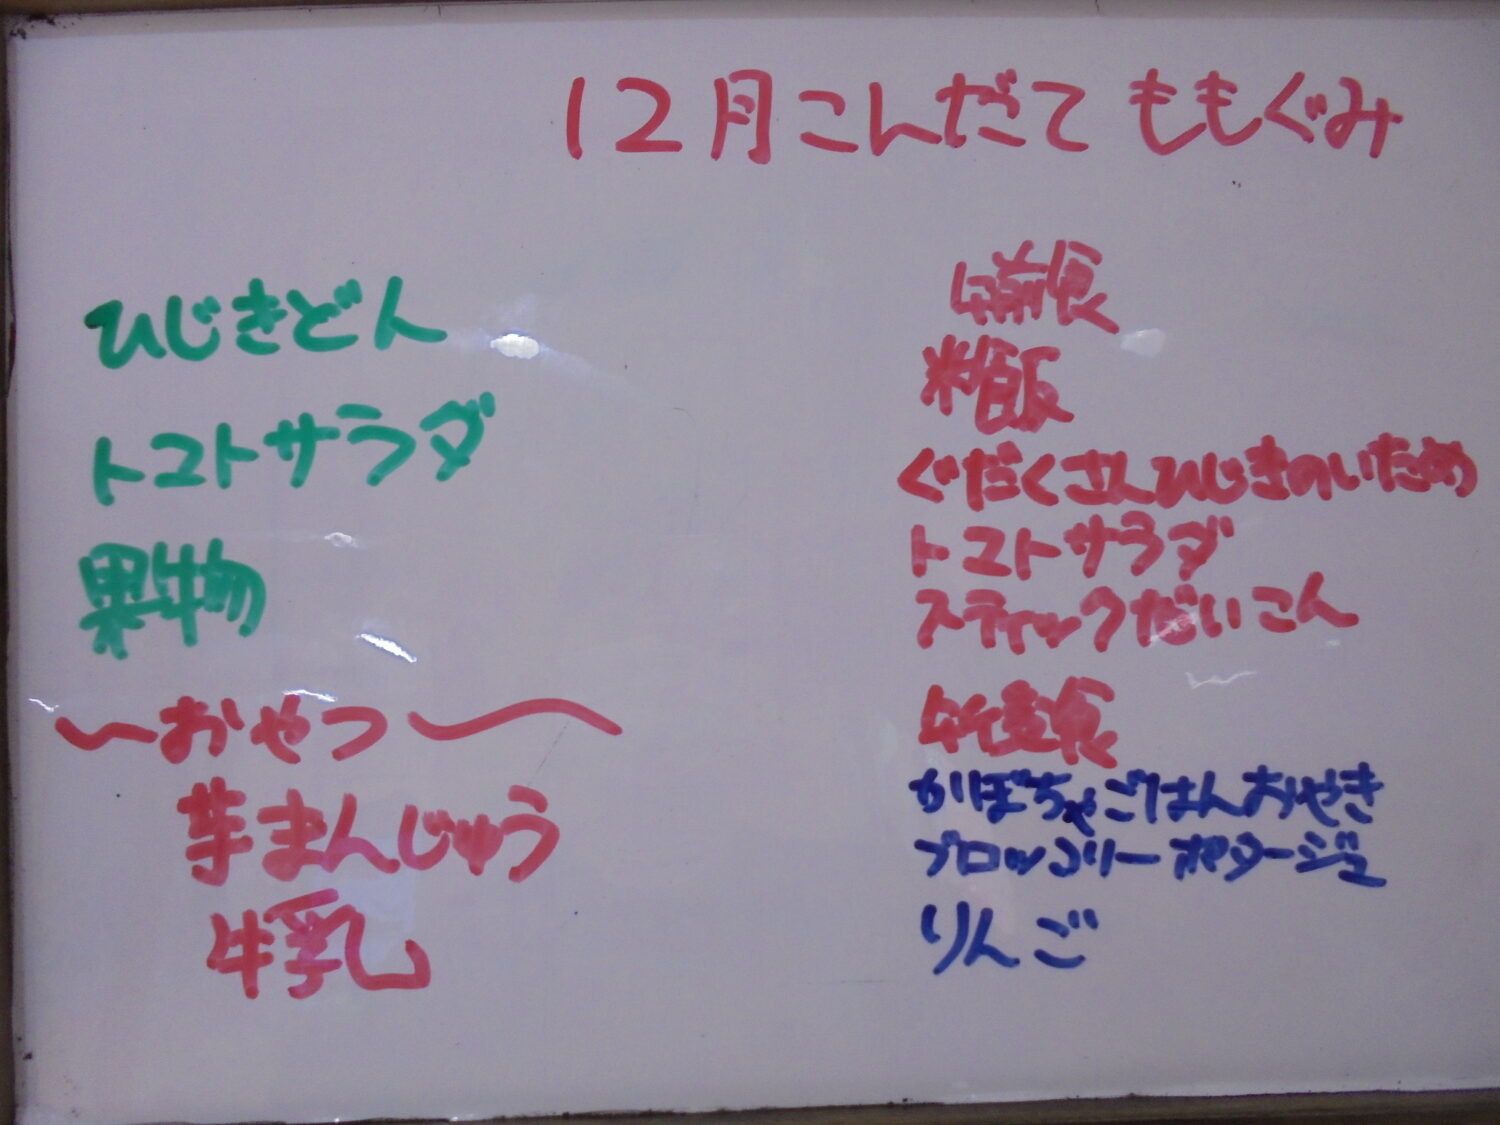 12月こんだて ももぐみ
ひじきどん
トマトサラダ
果物
〜おやつ〜
芋まんじゅう
牛乳
午前食
軟飯
ぐだくさんひじきのいため
トマトサラダ
スティックだいこん
午後食
かぼちゃごはんおやき
ブロッコリーポタージュ
りんご